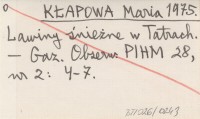 o KŁAPOWA Maria 1975.
Lawiny śnieżne w Tatrach.
— Gaz. Obserw. PIHM 28,
nr 2: 4-7.